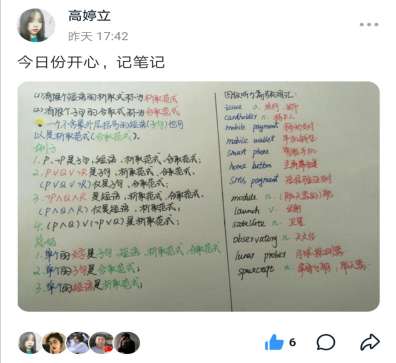 高婷立
昨天 17:42
今日份开心，记笔记
(1)有限个短语的析取式称为析取范式
(2)有限个子句的合取式称为合取范式
一个不含最外层括号的短语(子句)也可
以是析取范式(合取范式)。
例子
1. P、¬P是子句，短语，析取范式，合取范式；
2. P∨Q∨¬R是子句，析取范式，合取范式，
(P∨Q∨¬R)仅是子句，合取范式；
3. ¬P∧Q∧R是短语，析取范式，合取范式，
(¬P∧Q∧R)仅是短语，析取范式；
4. (P∧Q)∨(¬P∨Q)是析取范式；
总结
1. 单个的文字是子句，短语，析取范式，合取范式
2. 单个的子句是合取范式；
3. 单个的短语是析取范式；
四级听力高频词汇：
issue n. 发行，
cardholder n. 持卡人
mobile payment 移动支付
mobile wallet 手机钱包
smart phone 智能手机
home button 主屏幕键
SMS payment 短信验证码
module n. (航天器的)舱
launch v. 发射
satellite n. 卫星
observatory n. 天文台
lunar prober 月球探测器
spacecraft n. 宇宙飞船，航天器
6